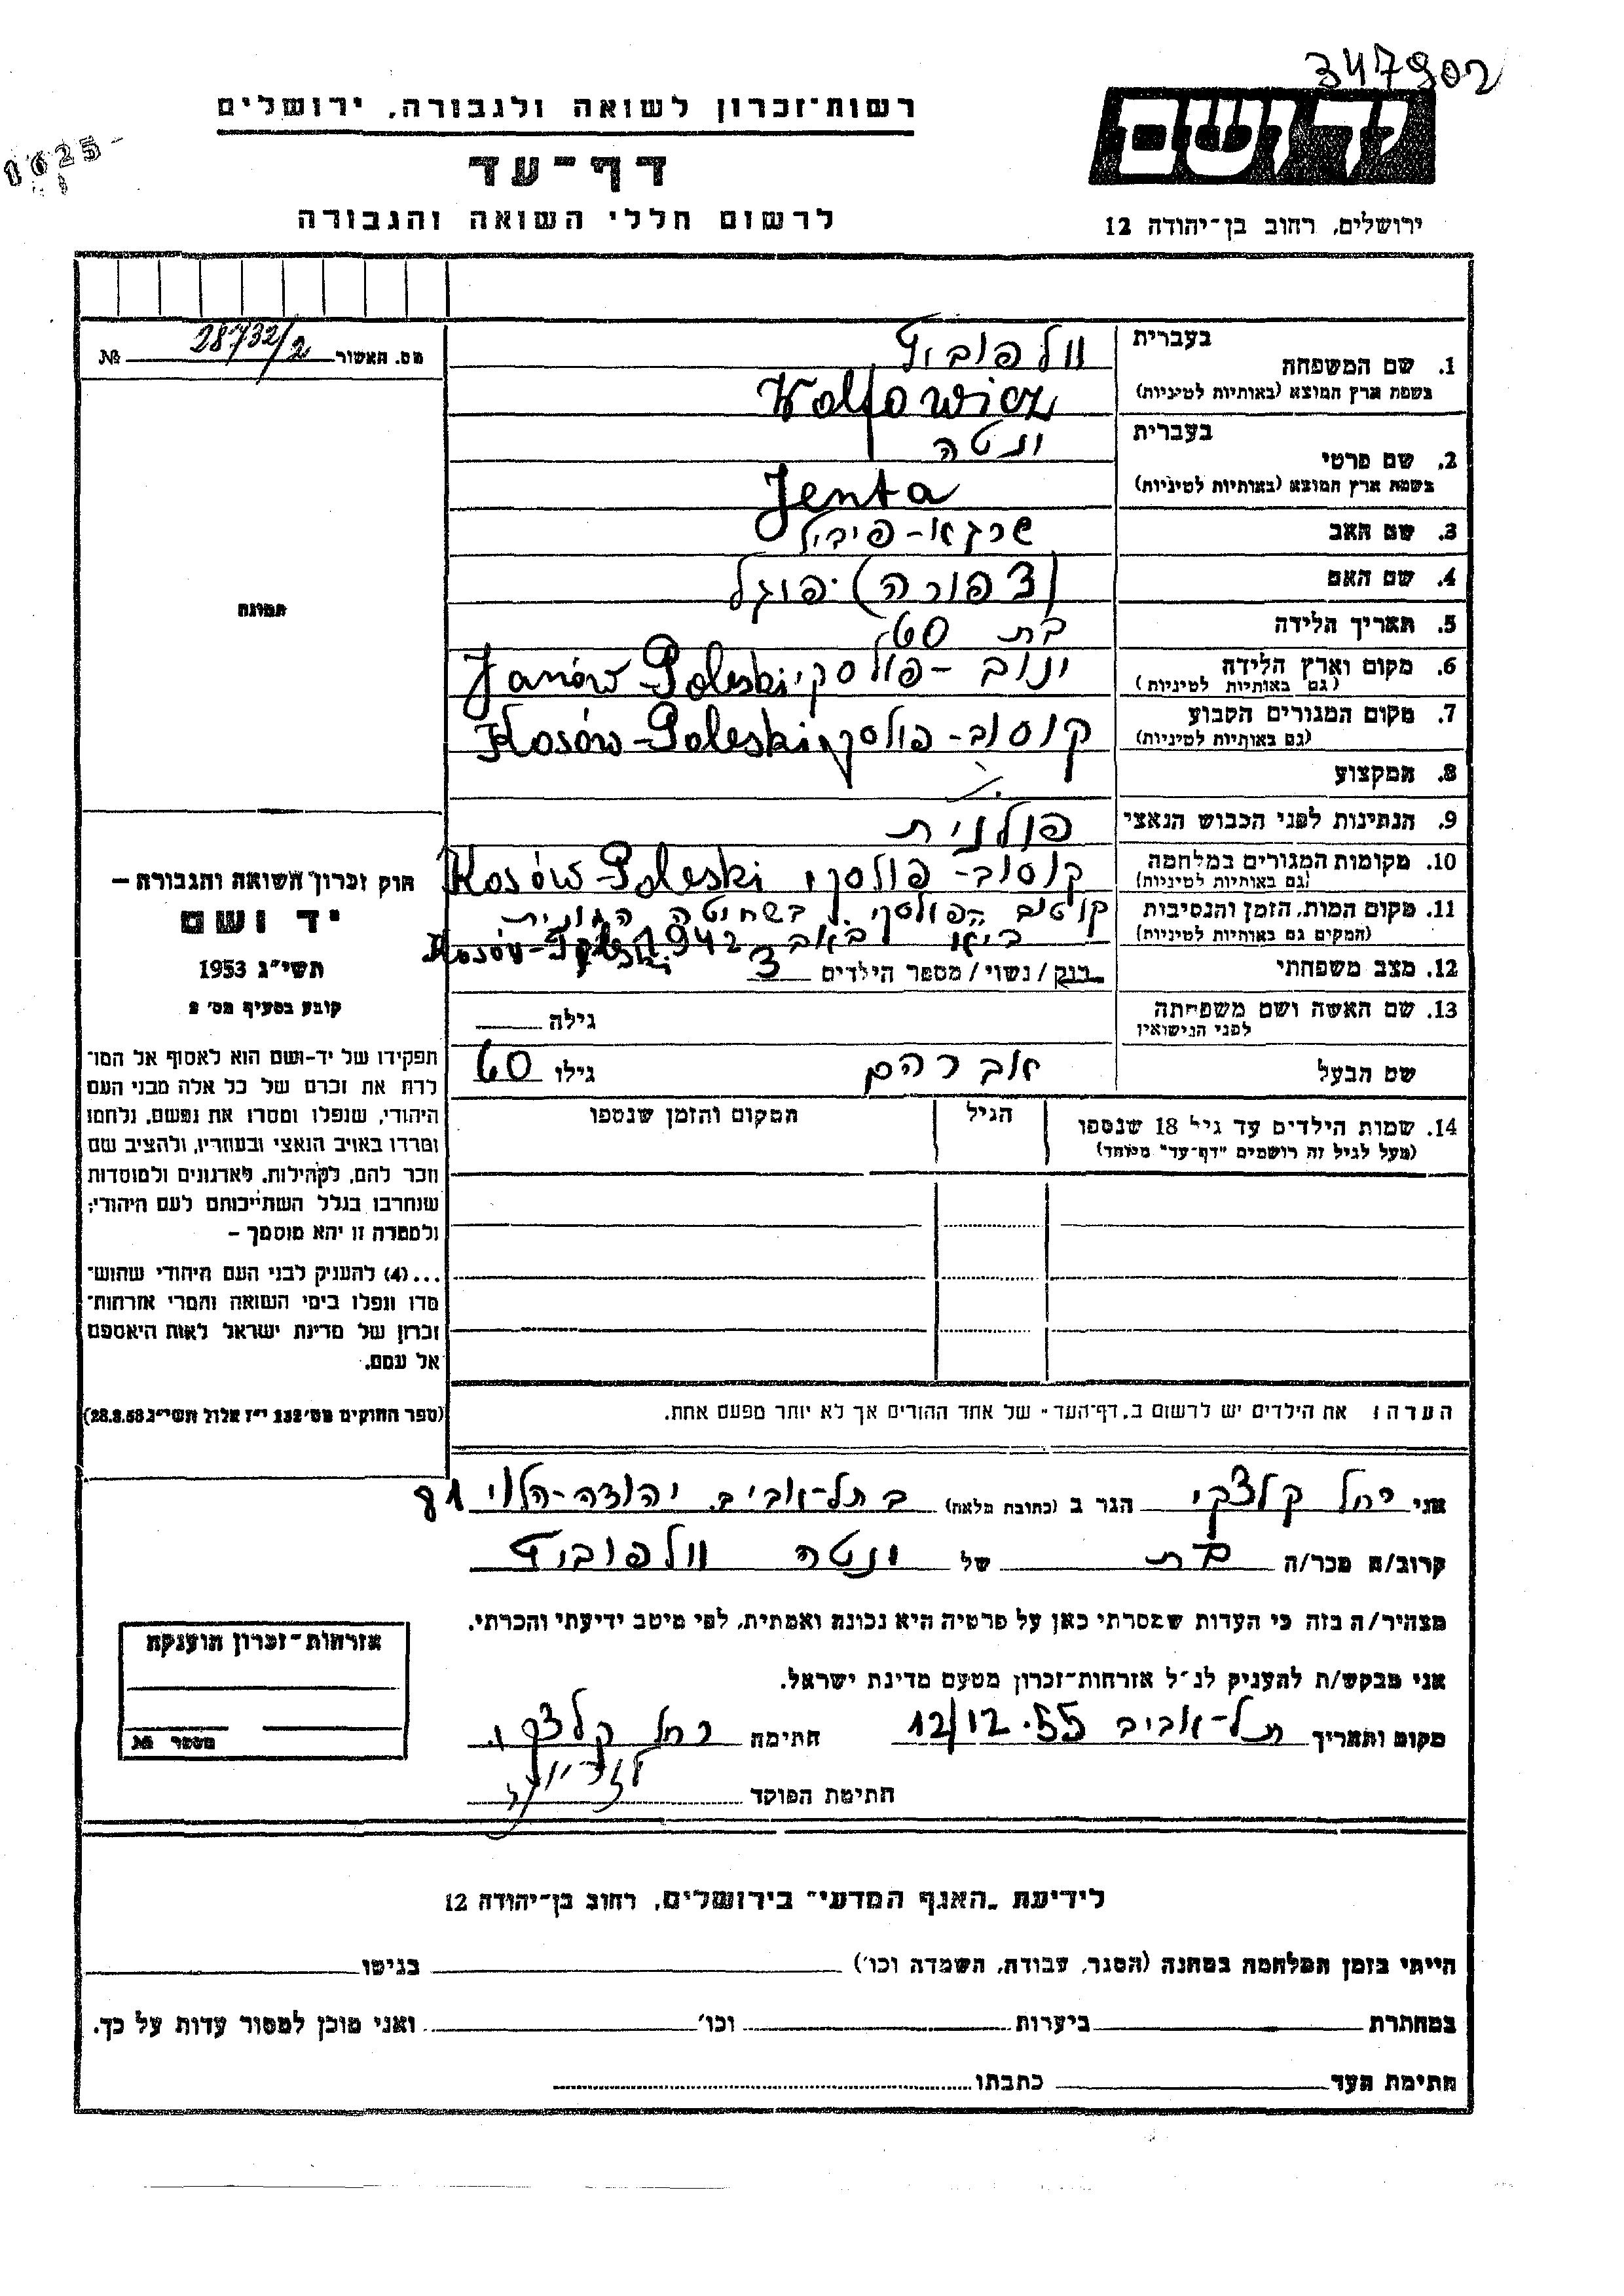 347902
רשות־זכרון לשואה ולגבורה, ירושלים
1625-
דף־עד
יד ושם
לרשום חללי השואה והגבורה
ירושלים, רחוב בן־יהודה 12
מס. האשור 28732/2 №
בעברית
1. שם המשפחה וולפוביץ
בשפת ארץ המוצא (באותיות לטיניות) Wolfowicz
בעברית
2. שם פרטי ינטה
בשפת ארץ המוצא (באותיות לטיניות) Jenta
3. שם האב שרגא-פיבל
4. שם האם (צפורה) פוגל
5. תאריך הלידה בת 60
6. מקום וארץ הלידה ינוב-פולסקי Janów Poleski
(גם באותיות לטיניות)
7. מקום המגורים הקבוע קוסוב-פולסקי Kosów-Poleski
(גם באותיות לטיניות)
8. המקצוע
9. הנתינות לפני הכבוש הנאצי פולנית
10. מקומות המגורים במלחמה קוסוב-פולסקי Kosów-Poleski
(גם באותיות לטיניות)
11. מקום המות, הזמן והנסיבות קוסוב הפולסקי בשחיטה
(המקום גם באותיות לטיניות) באב 1942 Kosów-Poleski
12. מצב משפחתי רווק/נשוי/מספר הילדים 3
13. שם האשה ושם משפחתה גילה
לפני הנישואין
שם הבעל אברהם גילו 60
14. שמות הילדים עד גיל 18 שנספו הגיל המקום והזמן שנספו
(מעל לגיל זה רושמים "דף־עד" מיוחד)
הערה: את הילדים יש לרשום ב„דף־העד" של אחד ההורים אך לא יותר מפעם אחת.
תמונה
חוק זכרון השואה והגבורה –
יד ושם
תשי"ג 1953
קובע בסעיף מס' 2
תפקידו של יד-ושם הוא לאסוף אל המו־
לדת את זכרם של כל אלה מבני העם
היהודי, שנפלו ומסרו את נפשם, נלחמו
ומרדו באויב הנאצי ובעוזריו, ולהציב שם
וזכר להם, לקהילות, לארגונים ולמוסדות
שנחרבו בגלל השתייכותם לעם היהודי;
ולמטרה זו יהא מוסמך –
...(4) להעניק לבני העם היהודי שהוש־
מדו ונפלו בימי השואה והמרי אזרחות־
זכרון של מדינת ישראל לאות היאספם
אל עמם.
(ספר החוקים מס' 132 י"ז אלול תשי"ג 28.8.53)
אני רחל קלצקי הגר ב (כתובת מלאה) בתל-אביב יהודה-הלוי 81
קרוב/ה מכר/ה בת של ינטה וולפוביץ
מצהיר/ה בזה כי העדות שמסרתי כאן על פרטיה היא נכונה ואמתית, לפי מיטב ידיעתי והכרתי.
אני מבקש/ת להעניק לנ"ל אזרחות־זכרון מטעם מדינת ישראל.
מקום ותאריך תל-אביב 12/12.55 חתימה רחל קלצקי
חתימת הפוקד
אזרחות־זכרון הוענקה
מספר №
לידיעת „האגף המדעי" בירושלים, רחוב בן־יהודה 12
הייתי בזמן המלחמה במחנה (הסגר, עבודה, השמדה וכו') בגיטו
במחתרת ביערות וכו' ואני מוכן למסור עדות על כך.
חתימת העד כתבתו